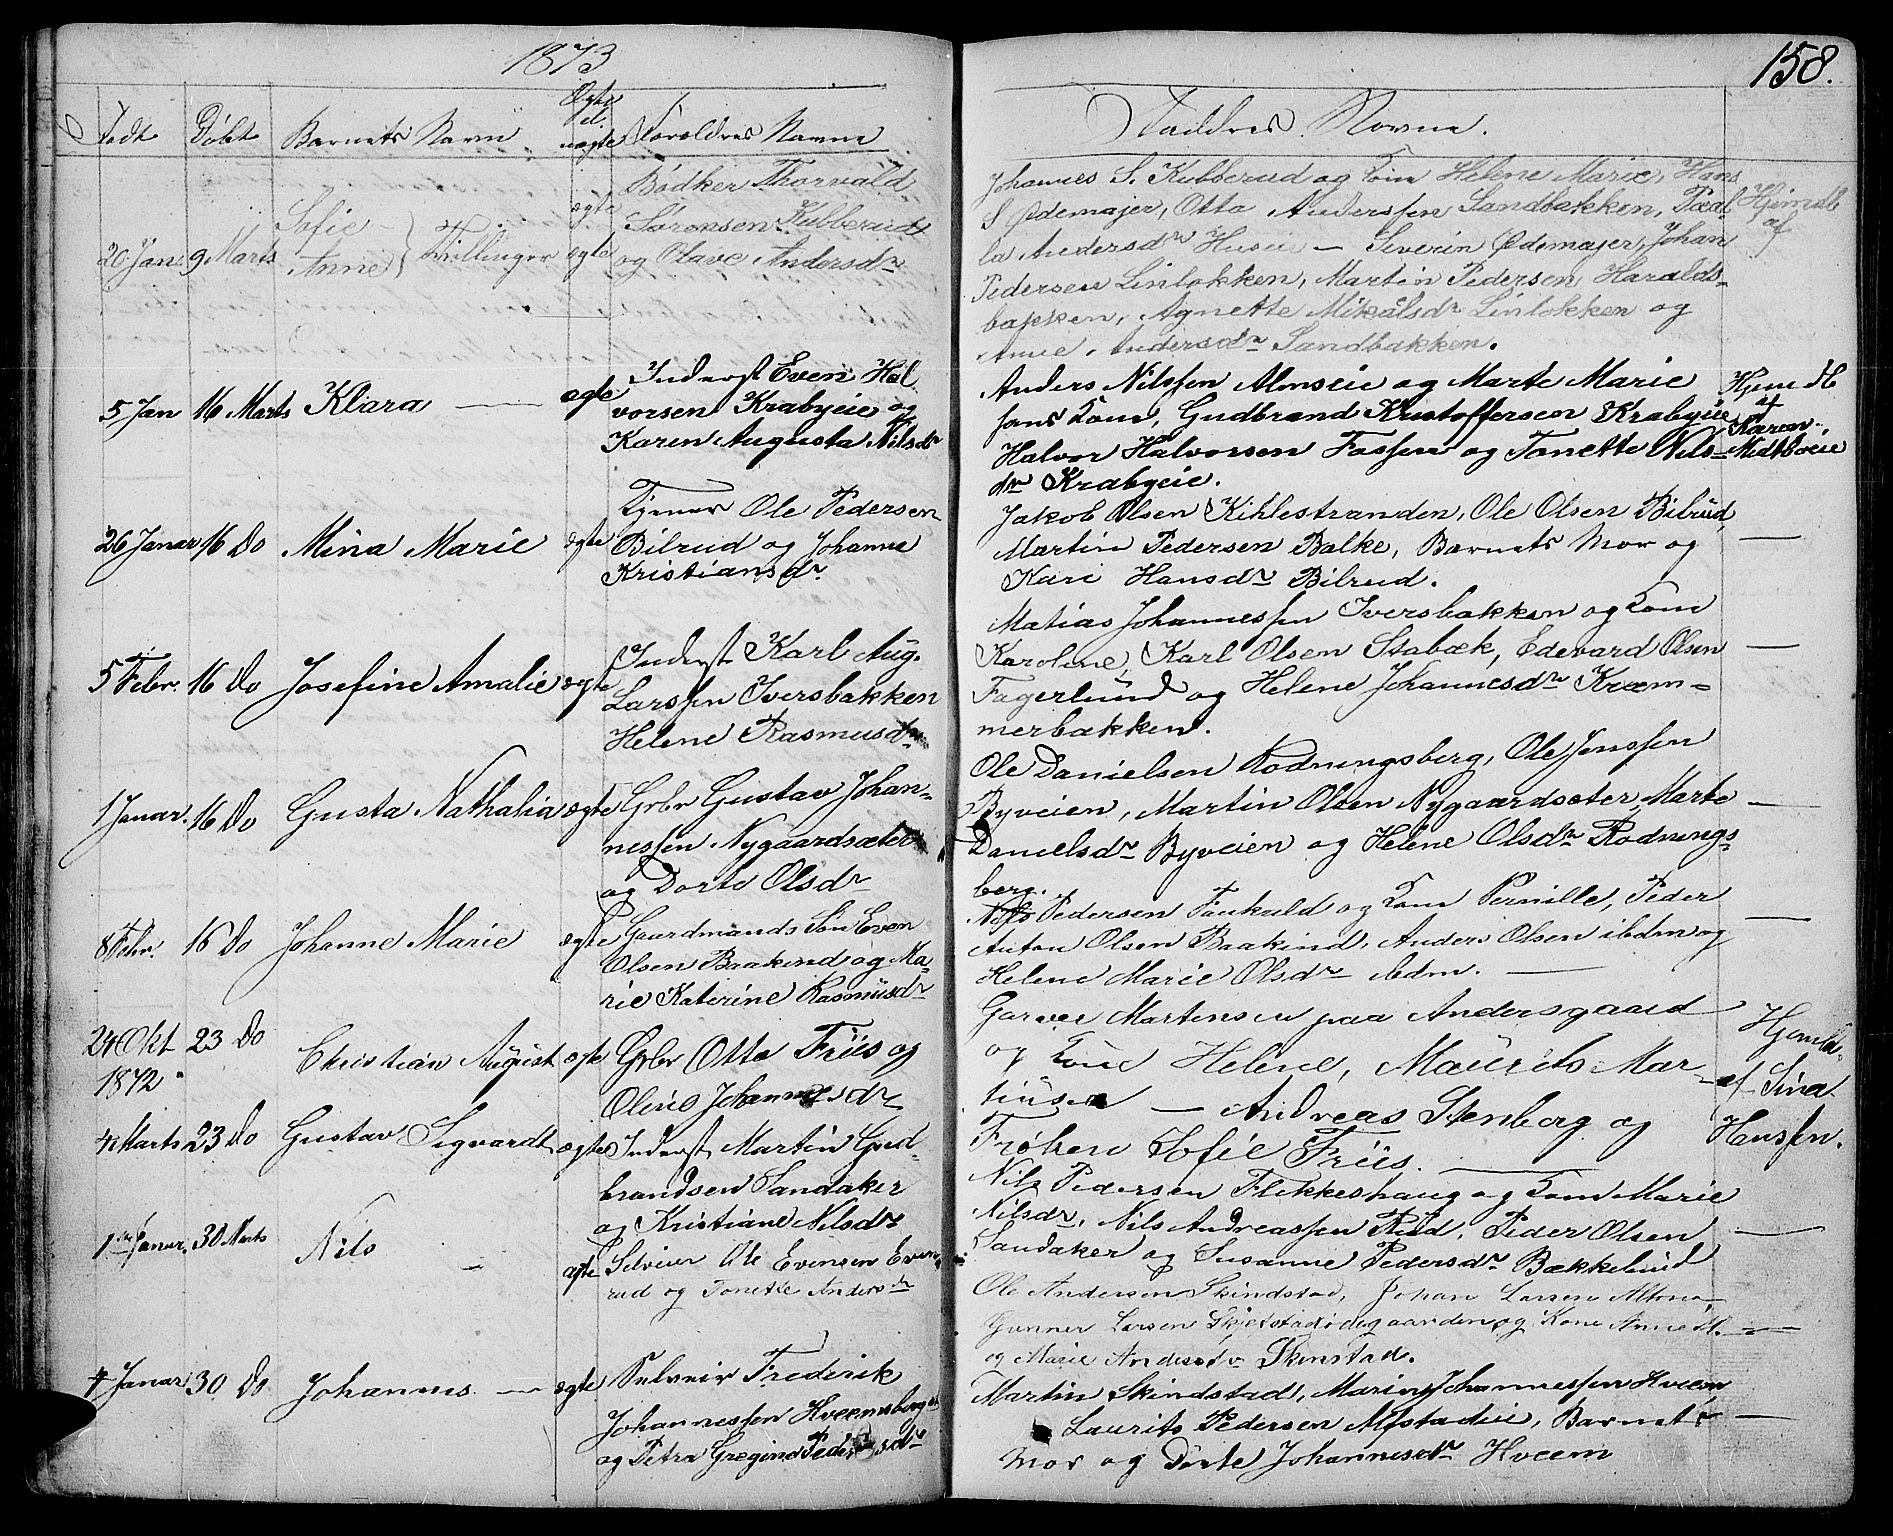 1873
158.
Født
Døbt
Barnets Navn
Ægte
el.
uægte
Foreldres Navne
Faddres Navne.
20 Jan 9 Marts
Sofie
Anne } Tvillinger
ægte
ægte
Bødker Thorvald
Sørensen Kubberud
og Olave Andersdr
Johannes S. Kubberud og Kone Helene Marie, Hans
S Ødemajer, Otto Anderssen Sandbakken, Paal
la Andersdr Huseie — Severin Ødemajer, Johan
Pedersen Linløkken, Martin Pedersen Haralds-
bakken, Agnette Mikalsdr Linløkken og
Anne Andersdr Sandbakken.
Hjemdb
af
5 Jan 16 Marts Klara — ægte
Inderst Even Hal
vorsen Krabyeie og
Karen Augusta Nilsdr
Anders Nilssen Almseie og Marte Marie
sans Kone, Gudbrand Kristoffersen Krabyeie
Halvor Halvorsen Fossen og Tonette Nils-
dr Krabyeie.
Hjem db
af
Karen
Midtbøeie
26 Januar 16 Do Mina Marie ægte
Tjener Ole Pedersen
Bilrud og Johanne
Kristiansdr.
Jakob Olsen Kihlestranden, Ole Olsen Bilrud,
Martin Pedersen Balke, Barnets Mor og
Kari Hansdr Bilrud.
—
5 Febr. 16 Do Josefine Amalie ægte
Inderst Karl Aug.
Larssen Iversbakken
Helene Rasmusdr
Matias Johannessen Iversbakken og Kone
Karoline, Karl Olsen Stabæk, Edevard Olsen
Fagerlund og Helene Johannesdr Kræm-
merbakken.
—
1 Januar. 16 Do Gusta Nathalia ægte
Grbr Gustav Johan-
nessen Nygaardsæter
og Dorte Olsdr
Ole Danielsen Rødningsberg, Ole Jenssen
Byveien, Martin Olsen Nygaardsæter, Marte
Danielsdr Byveien og Helene Olsdr Rødnings-
berg.
—
8 Febr. 16 Do Johanne Marie ægte
Gaardmands Søn Even
Olsen Baakind og Ma-
rie Katerine Rasmusdr
Nils Pedersen Faukald og Kone Pernille, Peder
Anton Olsen Baakind, Anders Olsen ibdm og
Helene Marie Olsdr ibdm. —
—
24 Okt 23 Do
1872
Christian August ægte
Grbr Otto Friis og
Oline Johannesdr
Garver Martinsen paa Andersgaard
og Kone Helene, Maurits Mar-
tinsen — Andreas Stenberg og
Frøken Sofie Friis. —
Hjemdb.
af Sina
Hanssen.
4 Marts 23 Do Gustav Sigvardt ægte
Inderst Martin Gud-
brandsen Sandaker
og Kristiane Nilsdr
Nils Pedersen Flikkeshaug og Kone Marie
Nilsdr, Nils Andreassen Rud, Peder Olsen
Sandaker og Susanne Pedersdr Bækkelund
—
1 Januar. 30 Marts Nils — ægte
Selveier Ole Evensen Even-
rud og Tonette Andersdr
Ole Andersen Skindstad, Johan Larsen Altona,
Gunner Larsen Skjelstadødegaarden og Kone Anne M.
og Marie Andersdr Skinstad.
—
4 Januar 30 Do Johannes — ægte
Selveier Frederik
Johannessen Hveemsberg
og Petra Gregine Pedersdr
Martin Skindstad, Marius Johannessen Hveem,
Laurits Pedersen Mjøstadeie, Barnets
Mor og Dorte Johannesdr Hveem
—